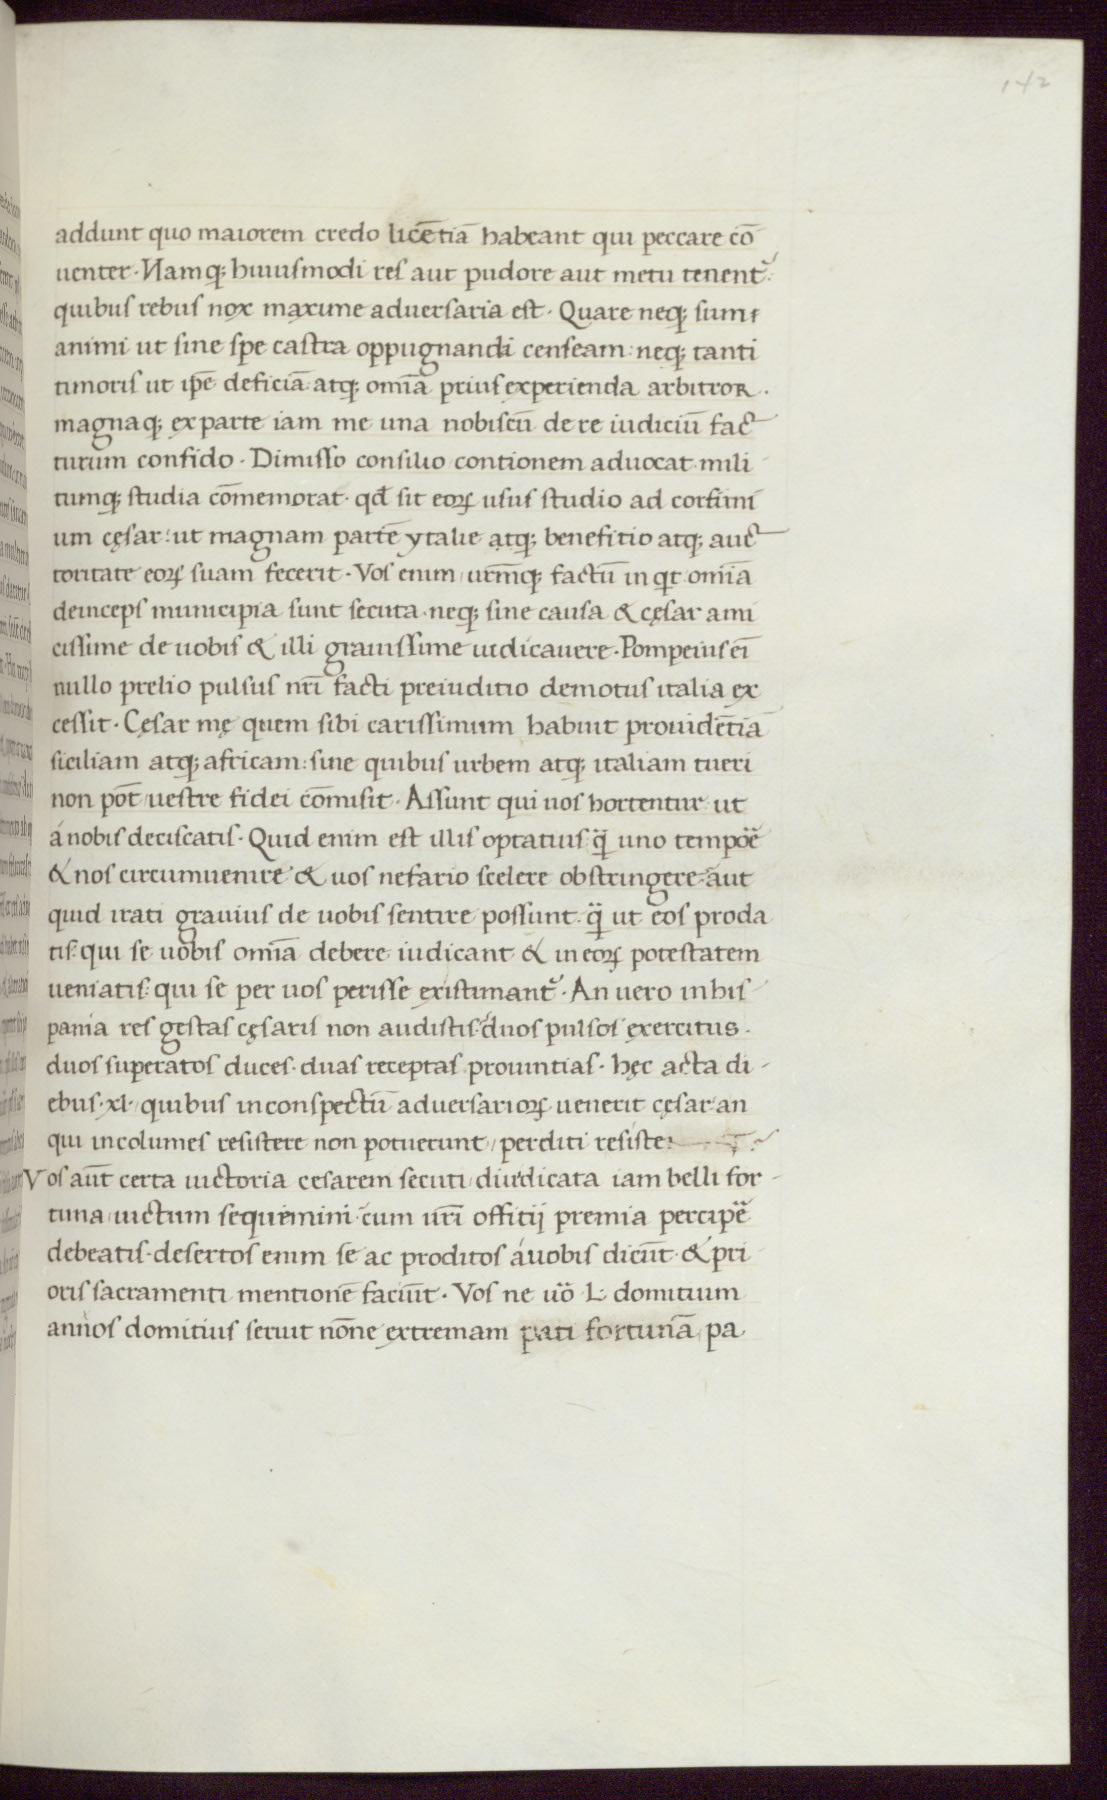 142
addunt quo maiorem credo licētiā habeant qui peccare cō
uenter · Namq; huiusmodi res aut pudore aut metu tenent᷑:
quibus rebus nox maxime aduersaria est · Quare neq; sum
animi ut sine spe castra oppugnandi censeam: neq; tanti
timoris ut ip̄e deficiā: atq; om̄ia prius experienda arbitror .
magnaq; ex parte iam me una nobiscū de re iudiciū fac
turum confido · Dimisso consilio contionem aduocat mili
tumq; studia cōmemorat · qd̄ sit eoꝝ usus studio ad corfini
um cęsar: ut magnam partē ytalie atq; benefitio atq; auc
toritate eoꝝ suam fecerit · Vos enim ur̄mq; factū inqt om̄ia
deinceps municipia sunt secuta · neq; sine causa & cęsar ami
cissime de uobis & illi grauissime iudicauere · Pompeius eī
nullo prelio pulsus nr̄i facti preiuditio demotus italia ex
cessit · Cęsar mę quem sibi carissimum habuit prouidētiā
siciliam atq; africam: sine quibus urbem atq; italiam tueri
non pōt uestre fidei cōmisit · Assunt qui uos hortentur ut
á nobis desciscatis · Quid enim est illis optatius q̄ uno tempoē
& nos circumuenire & uos nefario scelere obstringere aut
quid irati grauius de uobis sentire possunt q̄ ut eos proda
tis: qui se uobis om̄ia debere iudicant & in eoꝝ potestatem
ueniatis: qui se per uos perisse existimant᷑ · An uero in his
pania res gestas cęsaris non audistis: duos pulsos exercitus ·
duos superatos duces · duas receptas prouintias · hęc acta di
ebus · xl · quibus in conspectū aduersarioꝝ uenerit cęsar an
qui incolumes resistere non potuerunt, perditi resiste
Vos aūt certa uictoria cesarem secuti diiudicata iam belli for
tuna uictum sequemini cum ur̄i offitij premia percipē
debeatis · desertos enim se ac proditos á uobis dicūt · & pri
oris sacramenti mentionē faciūt · Vos ne uō L · domitium
annos domitius seruit nōne extremam pati fortunā, pa